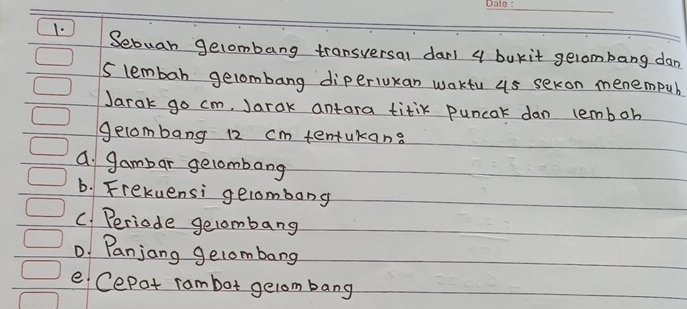 Date :
1. Sebuah gelombang transversal dari 4 bukit gelombang dan
5 lembah gelombang diperlukan waktu 45 sekon menempuh
Jarak 90 cm. Jarak antara titik Puncak dan lembah
gelombang 12 cm tentukan:
a. gambar gelombang
b. Frekuensi gelombang
c. Periode gelombang
D. Panjang gelombang
e. Cepat rambat gelombang